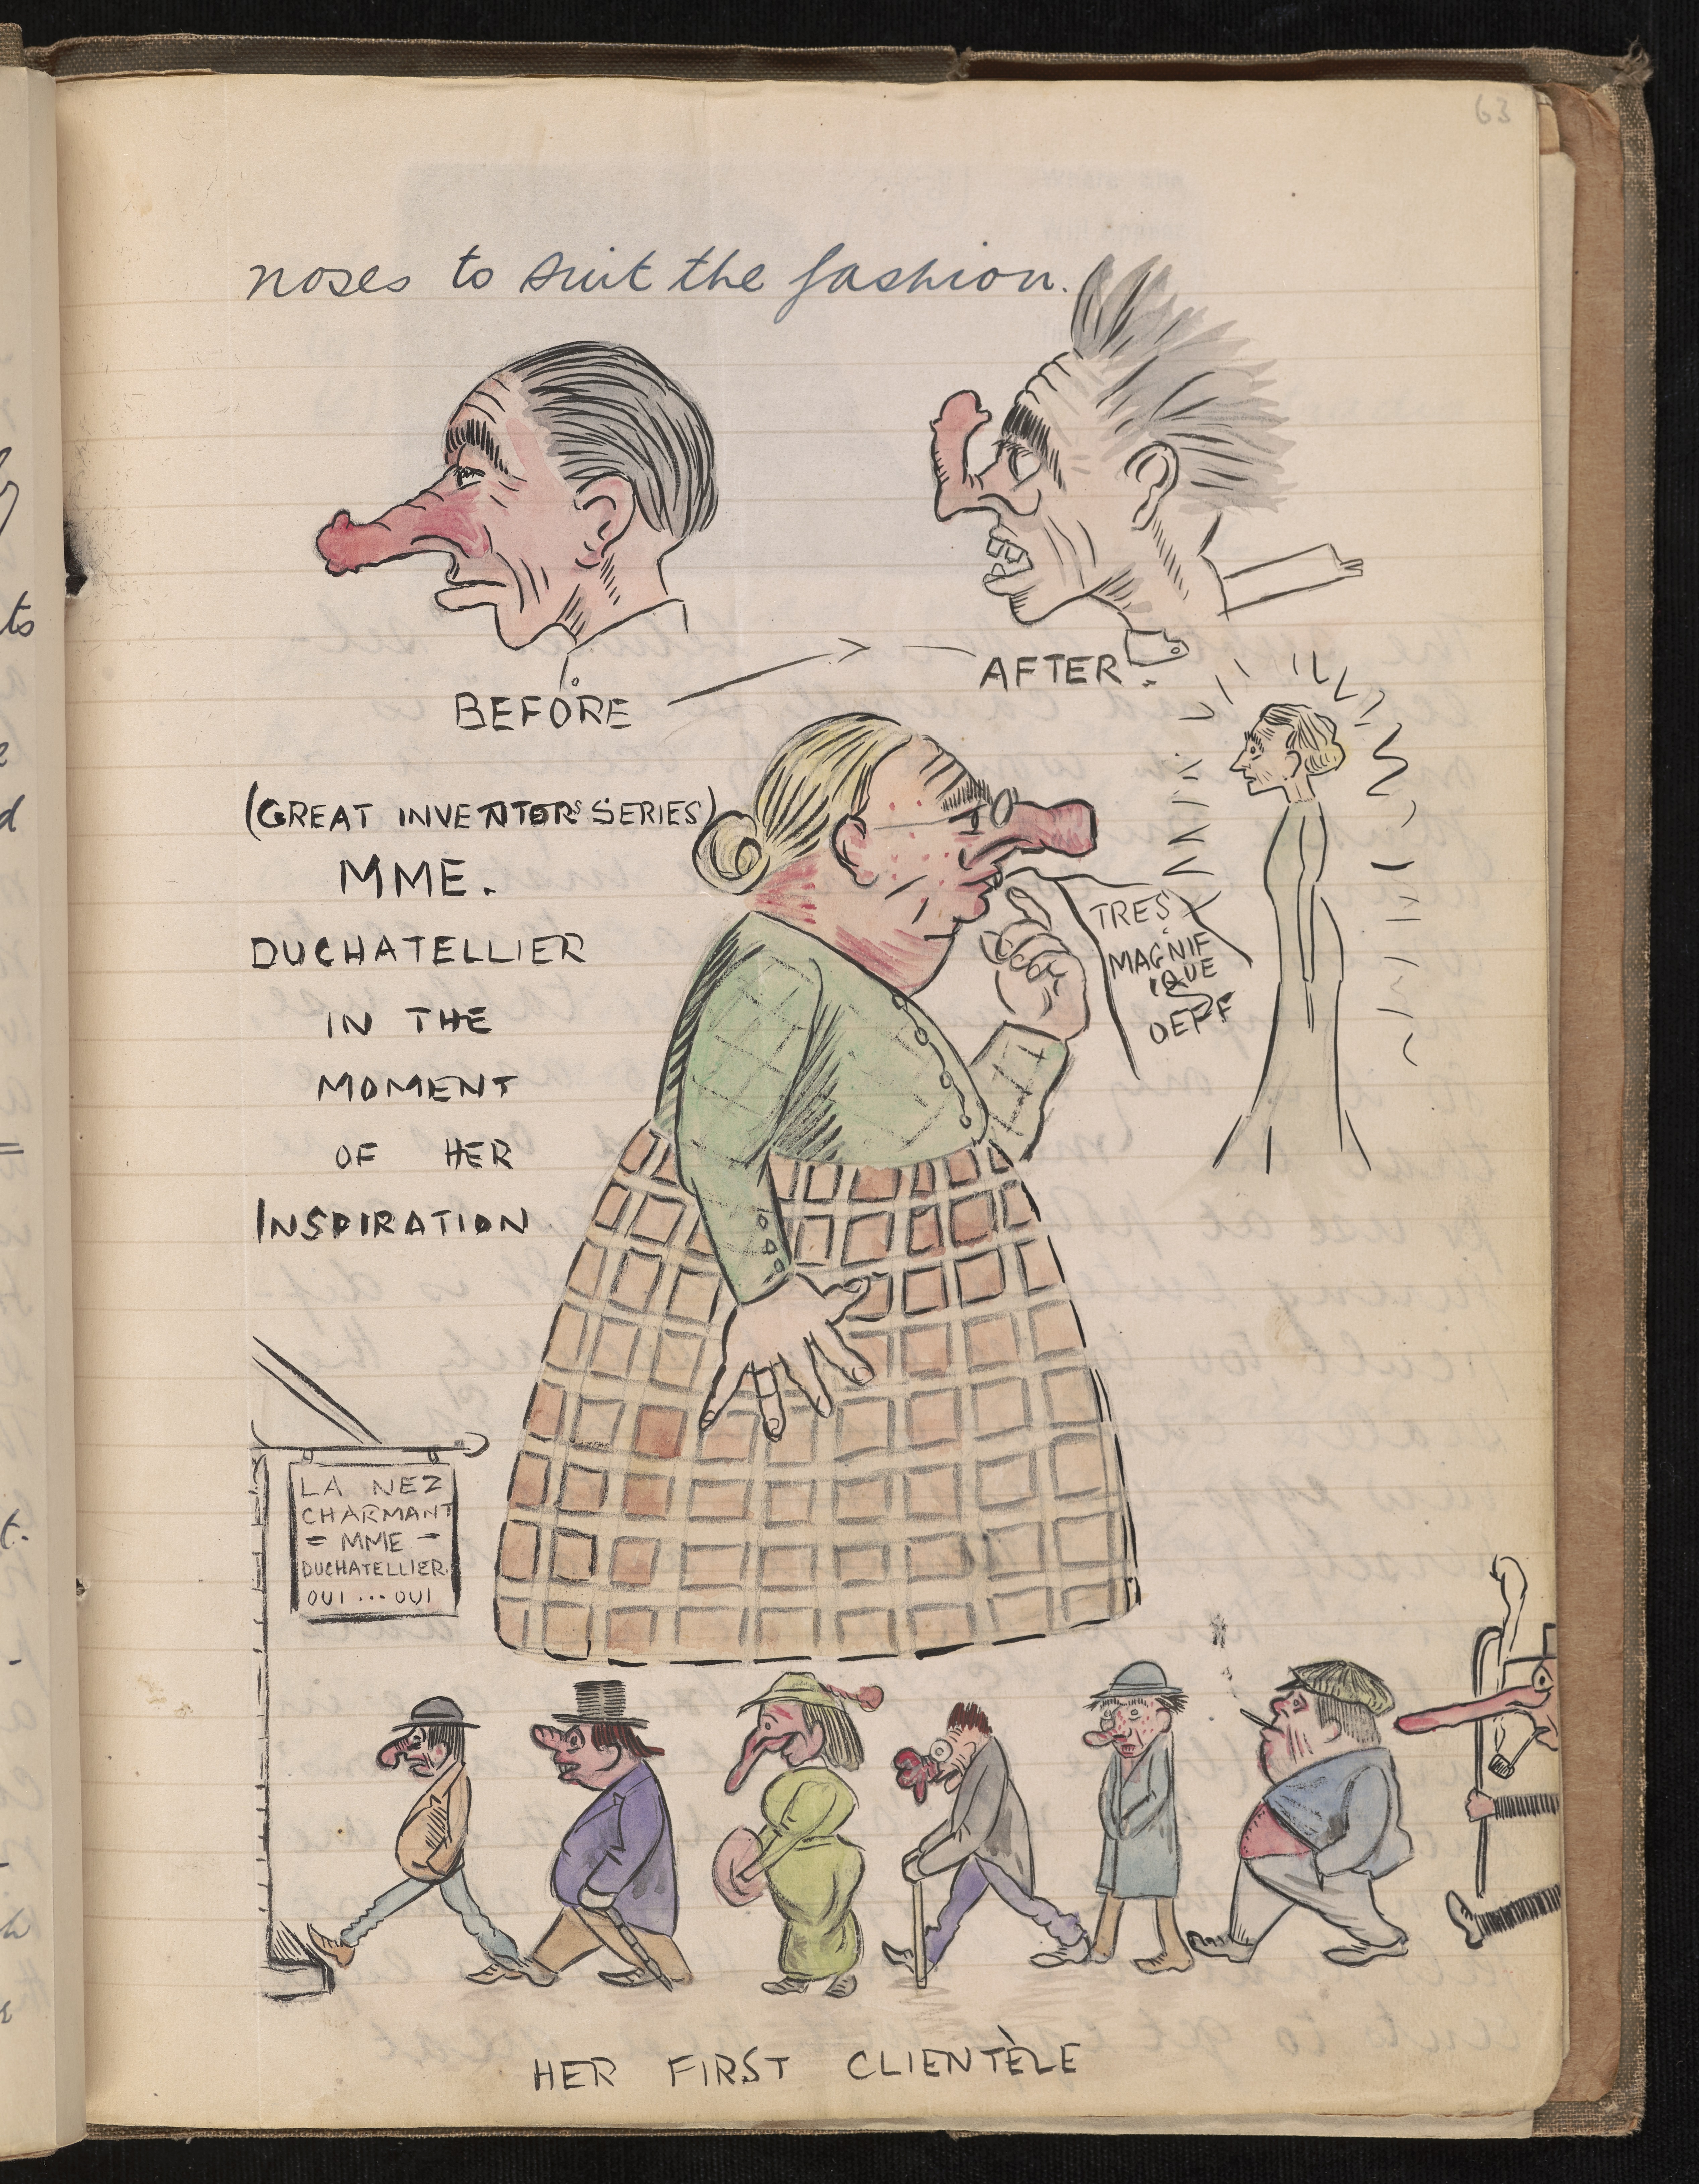 63
noses to suit the fashion.
BEFORE
AFTER.
(GREAT INVENTORS SERIES)
MME.
DUCHATELLIER
IN THE
MOMENT
OF HER
INSPIRATION
TRES
MAGNIF
IQUE
LA NEZ
CHARMANT
= MME =
DUCHATELLIER.
OUI ... OUI
HER FIRST CLIENTÈLE